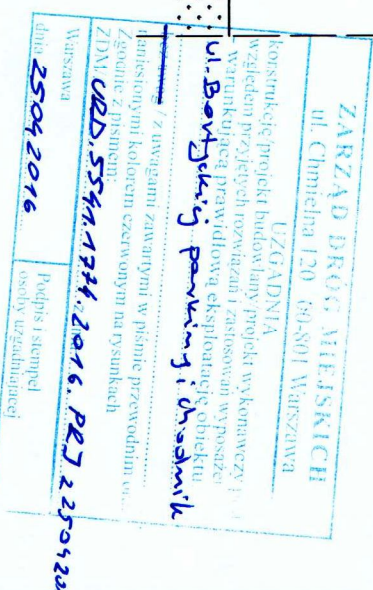 ZARZĄD DRÓG MIEJSKICH
ul. Chmielna 120 00-801 Warszawa
UZGADNIA
konstrukcję projekt budowlany projekt wykonawczy
względem przyjętych rozwiązań i zastosowań wyposaże
warunkującą prawidłową eksploatację obiektu
ul. Bartyckiej parkingi i chodnik
/ z uwagami zawartymi w piśmie przewodnim
naniesionymi kolorem czerwonym na rysunkach
Zgodnie z pismem
ZDM URD.5541.1774.2016.PRJ z 250420
Warszawa
dnia 25042016
Podpis i stempel
osoby uzgadniającej